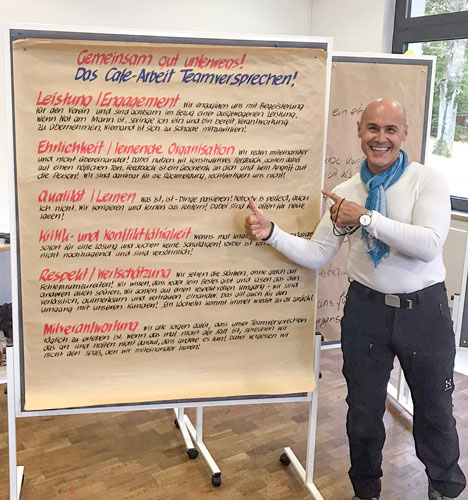 Gemeinsam gut unterwegs!
Das Cafe-Arbeit Teamversprechen!
Leistung/Engagement Wir engagieren uns mit Begeisterung
für den Verein und sind achtsam im Bezug einer ausgewogenen Leistung.
Wenn Not am Mann ist, springe ich ein und bin bereit, Verantwortung
zu übernehmen. Niemand ist sich zu schade mitzuwirken!
Ehrlichkeit/lernende Organisation Wir reden miteinander
und nicht übereinander! Dabei nutzen wir konstruktives Feedback, achten dabei
auf einen höflichen Ton. Feedback ist ein Geschenk an dich und kein Angriff auf
die Person! Wir sind dankbar für die Rückmeldung, rechtfertigen uns nicht!
Qualität/Lernen Was ist, ist - Dinge passieren! Nobody is perfect, auch
ich nicht. Wir korrigieren und lernen aus Fehlern! Dabei sind wir offen für neue
Ideen!
Kritik- und Konfliktfähigkeit Wenns mal
sofort für eine Lösung und suchen keine Schuldigen!
nicht nachtragend und sind versöhnlich!
Respekt/Wertschätzung Wir sehen die Stärken, ohne gleich auf
Wir wissen, dass jeder sein Bestes gibt und lassen das den
anderen auch spüren. Wir achten auf einen respektvollen Umgang - wir sind
verlässlich, aufmerksam und vertrauen einander. Das gilt auch für den
Umgang mit unseren Kunden! Ein Lächeln kommt immer wieder zu dir zurück!
Mitverantwortung Wir alle sorgen dafür, dass unser Teamversprechen
täglich zu erleben ist. Wenn das mal nicht der Fall ist, sprechen wir
das an und hoffen nicht darauf, dass andere es tun! Dabei vergessen wir
nicht den Spaß, den wir miteinander haben!